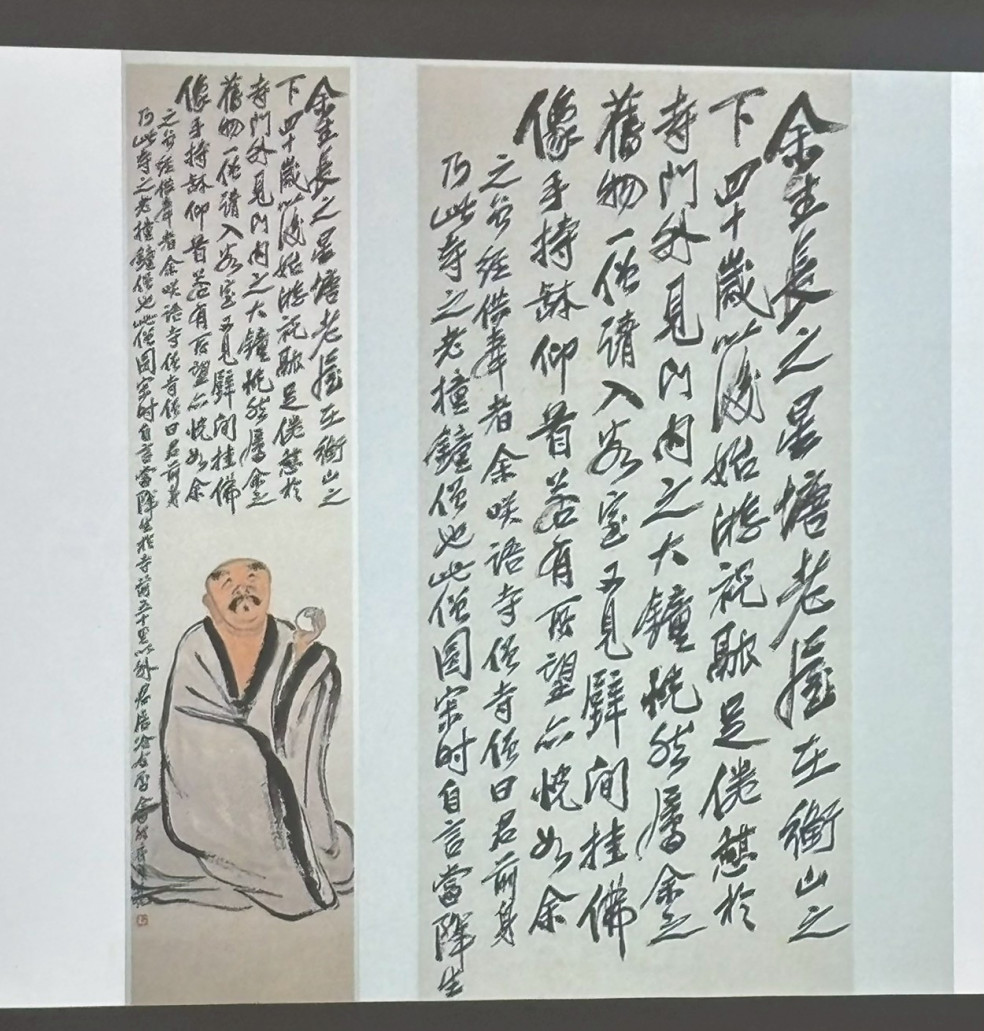 余生長之星塘老屋在衡山之
下四十歲以後始游祝融足倦憩於
寺門外見門內之大鐘恍然屬余之
舊物一僧請入客室又見壁間挂佛
像手持缽仰首若有所望亦恍如余
之曾經供奉者余咲語寺僧寺僧曰君前身
乃此寺之老撞鐘僧也此僧圓寂时自言當降生
余生長之星塘老屋在衡山之
下四十歲以後始游祝融足倦憩於
寺門外見門內之大鐘恍然屬余之
舊物一僧請入客室又見壁間挂佛
像手持缽仰首若有所望亦恍如余
之曾經供奉者余咲語寺僧寺僧曰君前身
乃此寺之老撞鐘僧也此僧圓寂时自言當降生於寺前五十里以外君居